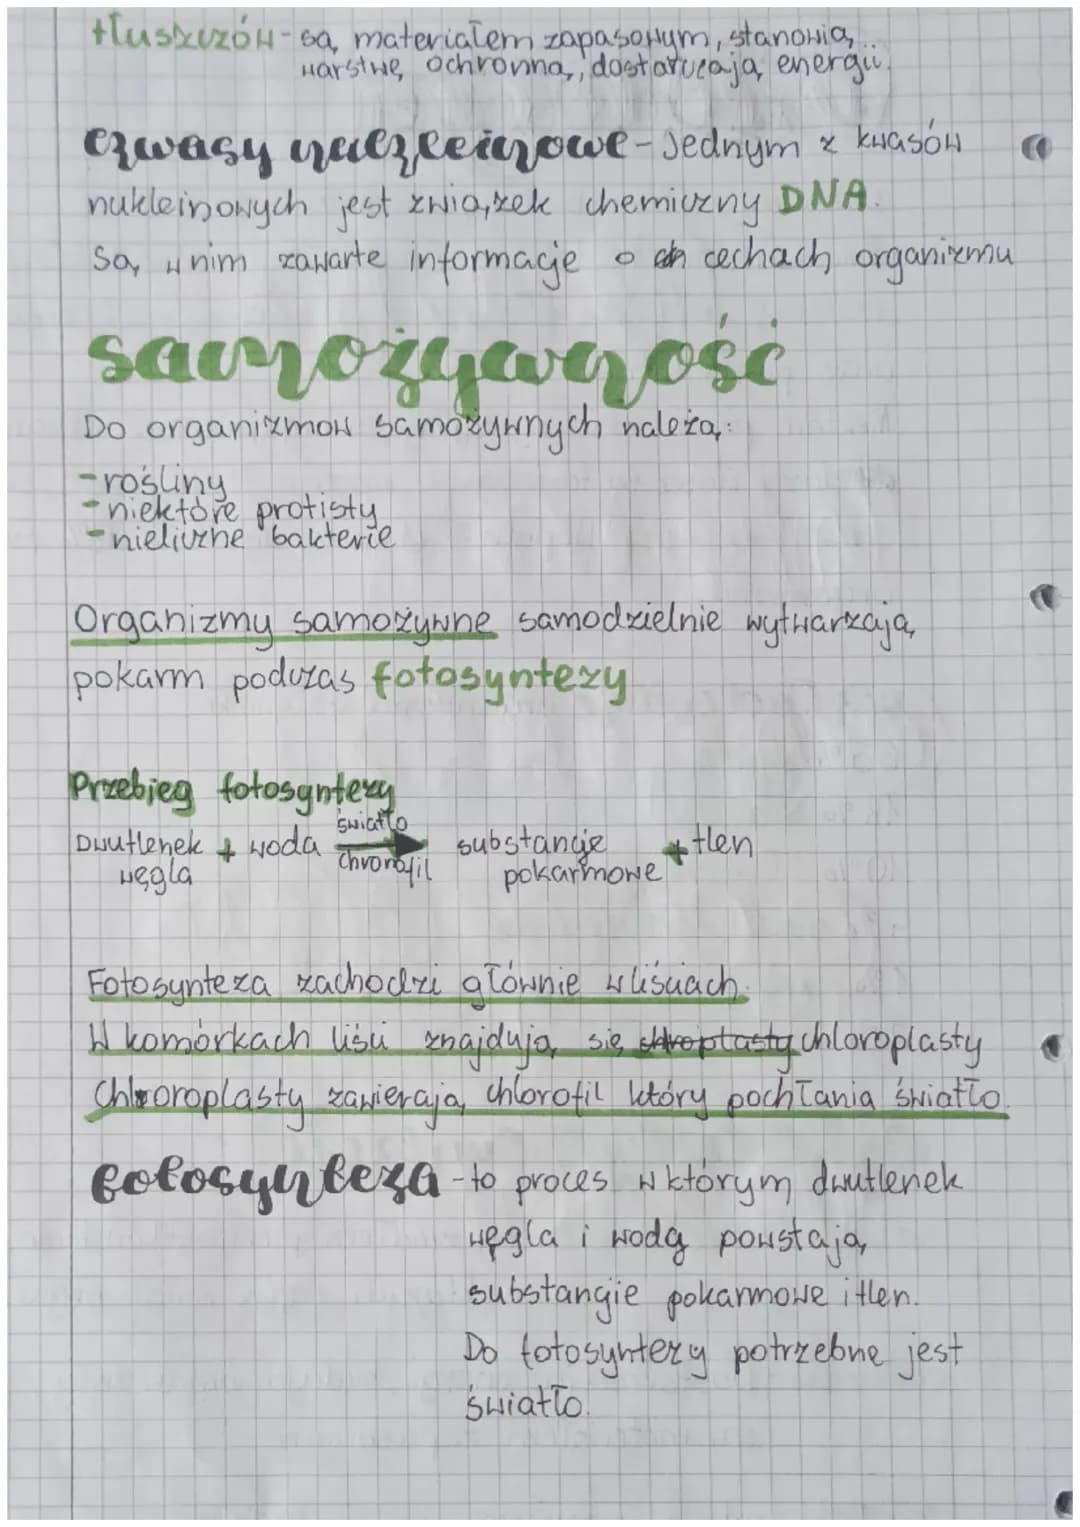 tłuszczów - są materiałem zapasowym, stanowią
warstwę ochronną, dostarczają energii.
kwasy nukleinowe - Jednym z kwasów
nukleinowych jest związek chemiczny DNA.
Są w nim zawarte informacje o cechach organizmu
samożywność
Do organizmow samożywnych należą:
- rośliny
- niektóre protisty
- nieliczne bakterie
Organizmy samożywne samodzielnie wytwarzają
pokarm podczas fotosyntezy
Przebieg fotosyntezy
światło
Dwutlenek + woda substancje + tlen
chlorofil
węgla pokarmowe
Fotosynteza zachodzi głównie w liściach.
W komórkach liści znajdują się chloroplasty
Chloroplasty zawierają chlorofil który pochłania światło.
fotosynteza - to proces w którym dwutlenek
węgla i wodą powstają
substancje pokarmowe i tlen.
Do fotosyntezy potrzebne jest
światło.